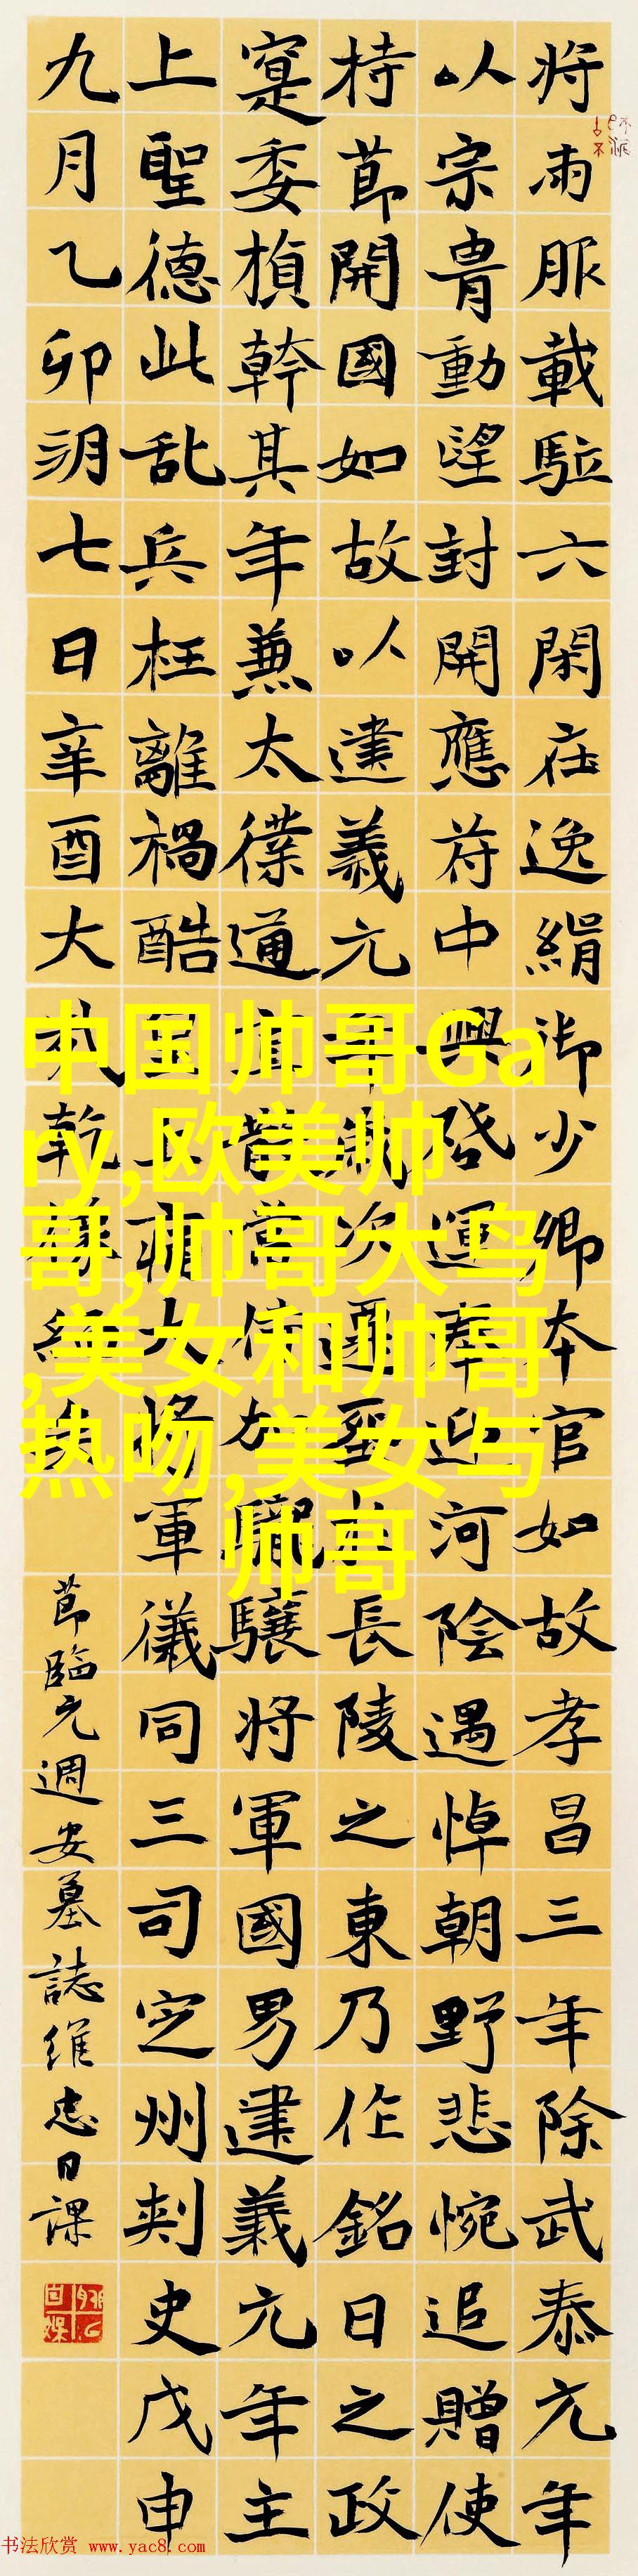 将雨服載駐六閑在逸絹御少卿本官如故孝昌三年除武泰元年
以宗胄動望封開應符中興啓運奉迎河陰遇悼朝野悲惋追贈使
持節開國如故以建義元年歲次長陵之東乃作銘曰之政
寔委楨幹其年兼太僕道當加驤将軍國男建義元年主
上聖德此乱兵枉離禍酷上大将軍儀同三司定州刺史戊申
九月乙卯朔七日辛酉大乾
節臨元週安墓誌維忠日課
中国帅哥Ga
ry,欧美帅
哥,帅哥大鸟
,美女和帅哥
热吻,美女与
帅哥
书法欣赏 www.yac8.com